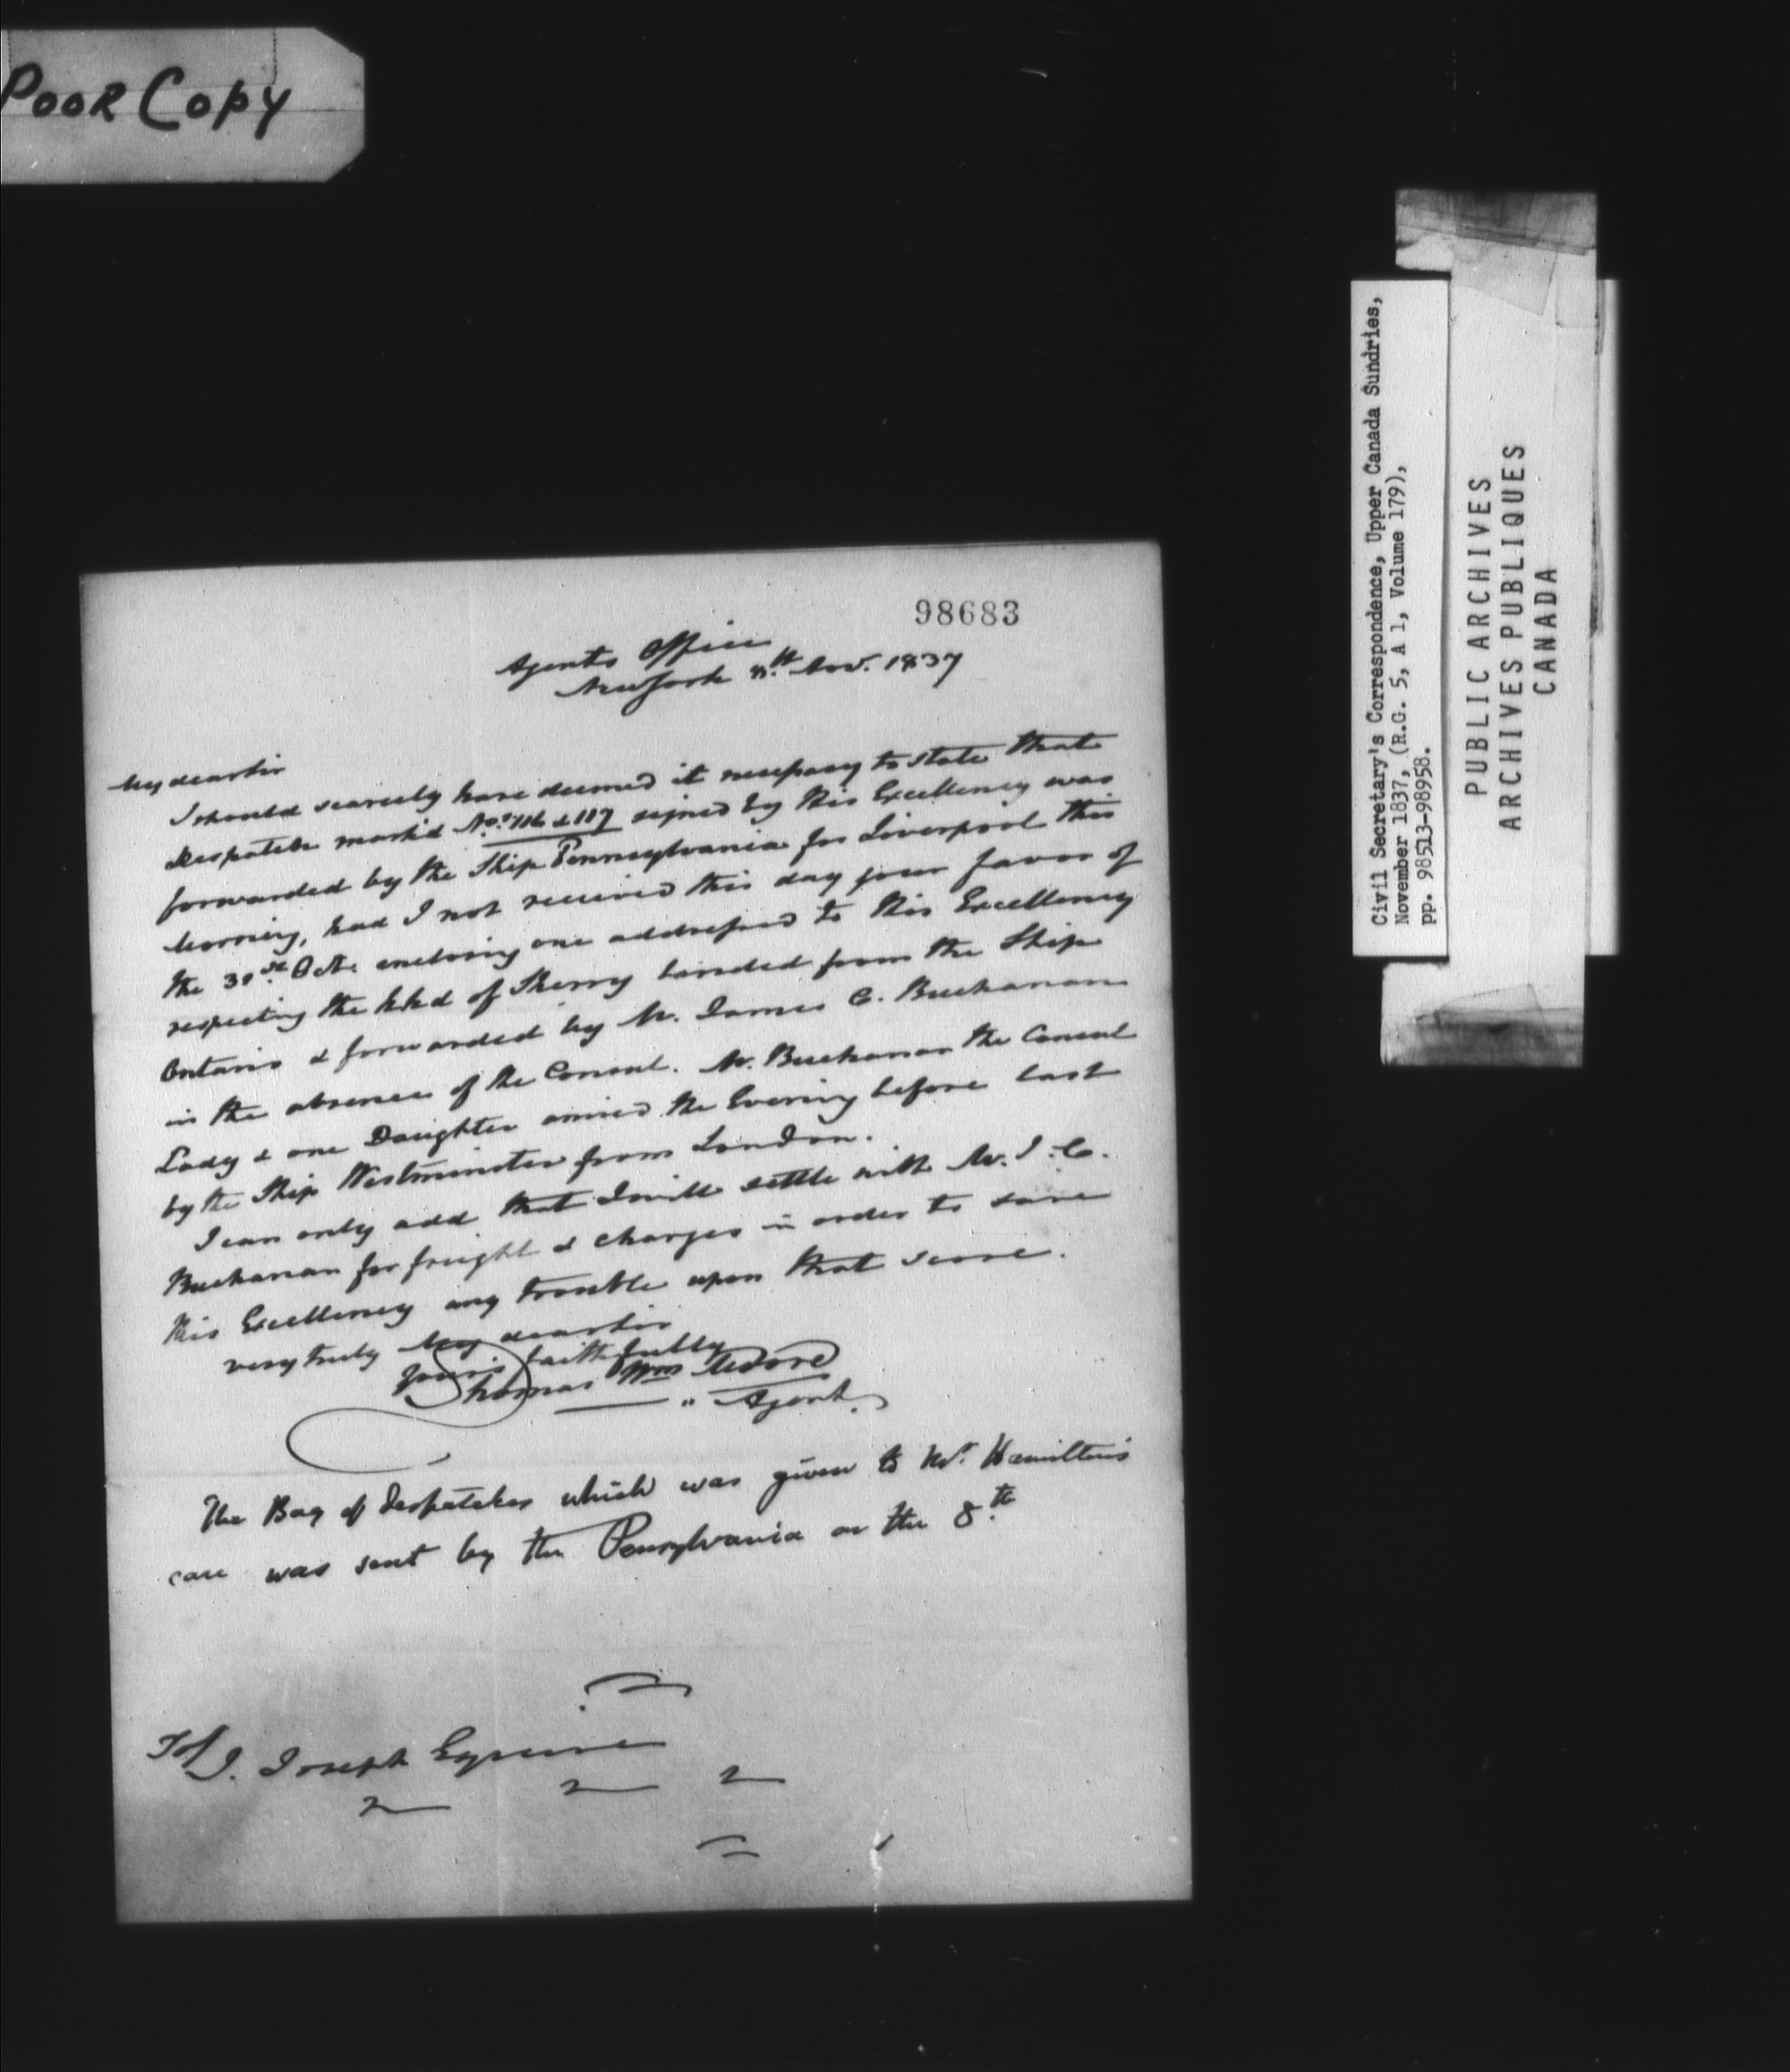 POOR COPY
98683
Agents Office
New York 8th. Nov. 1837
My dear Sir
I should scarcely have deemed it necessary to state that
Despatch mark'd Nos. 116 & 117 signed by His Excellency was
forwarded by the Ship Pennsylvania for Liverpool this
Morning, had I not received this day your favor of
the 31st. Octr. enclosing one addressed to His Excellency
respecting the hhd of Sherry landed from the Ship
Ontario & forwarded by Mr. James C. Buchanan
in the absence of the Consul. Mr. Buchanan the Consul
Lady & one Daughter arrived the Evening before last
by the Ship Westminster from London.
I can only add that I will settle with Mr. J. C.
Buchanan for freight & charges in order to save
His Excellency any trouble upon that score.
very truly My dear Sir
yours faithfully
Thomas Wm Moore
" Agent.
The Bag of Despatches which was given to Mr. Hamilton's
care was sent by the Pensylvania on the 8.th
To J. Joseph Esquire
Civil Secretary's Correspondence, Upper Canada Sundries,
November 1837, (R.G. 5, A 1, Volume 179),
pp. 98513-98958.
PUBLIC ARCHIVES
ARCHIVES PUBLIQUES
CANADA